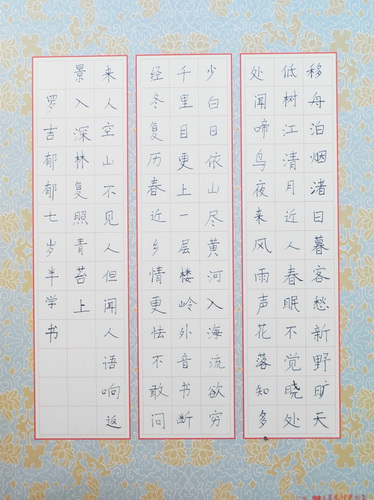 移舟泊烟渚日暮客愁新野旷天
低树江清月近人春眠不觉晓处
处闻啼鸟夜来风雨声花落知多
少白日依山尽黄河入海流欲穷
千里目更上一层楼岭外音书断
经冬复历春近乡情更怯不敢问
来人空山不见人但闻人语响返
景入深林复照青苔上
罗吉郁郁七岁半学书